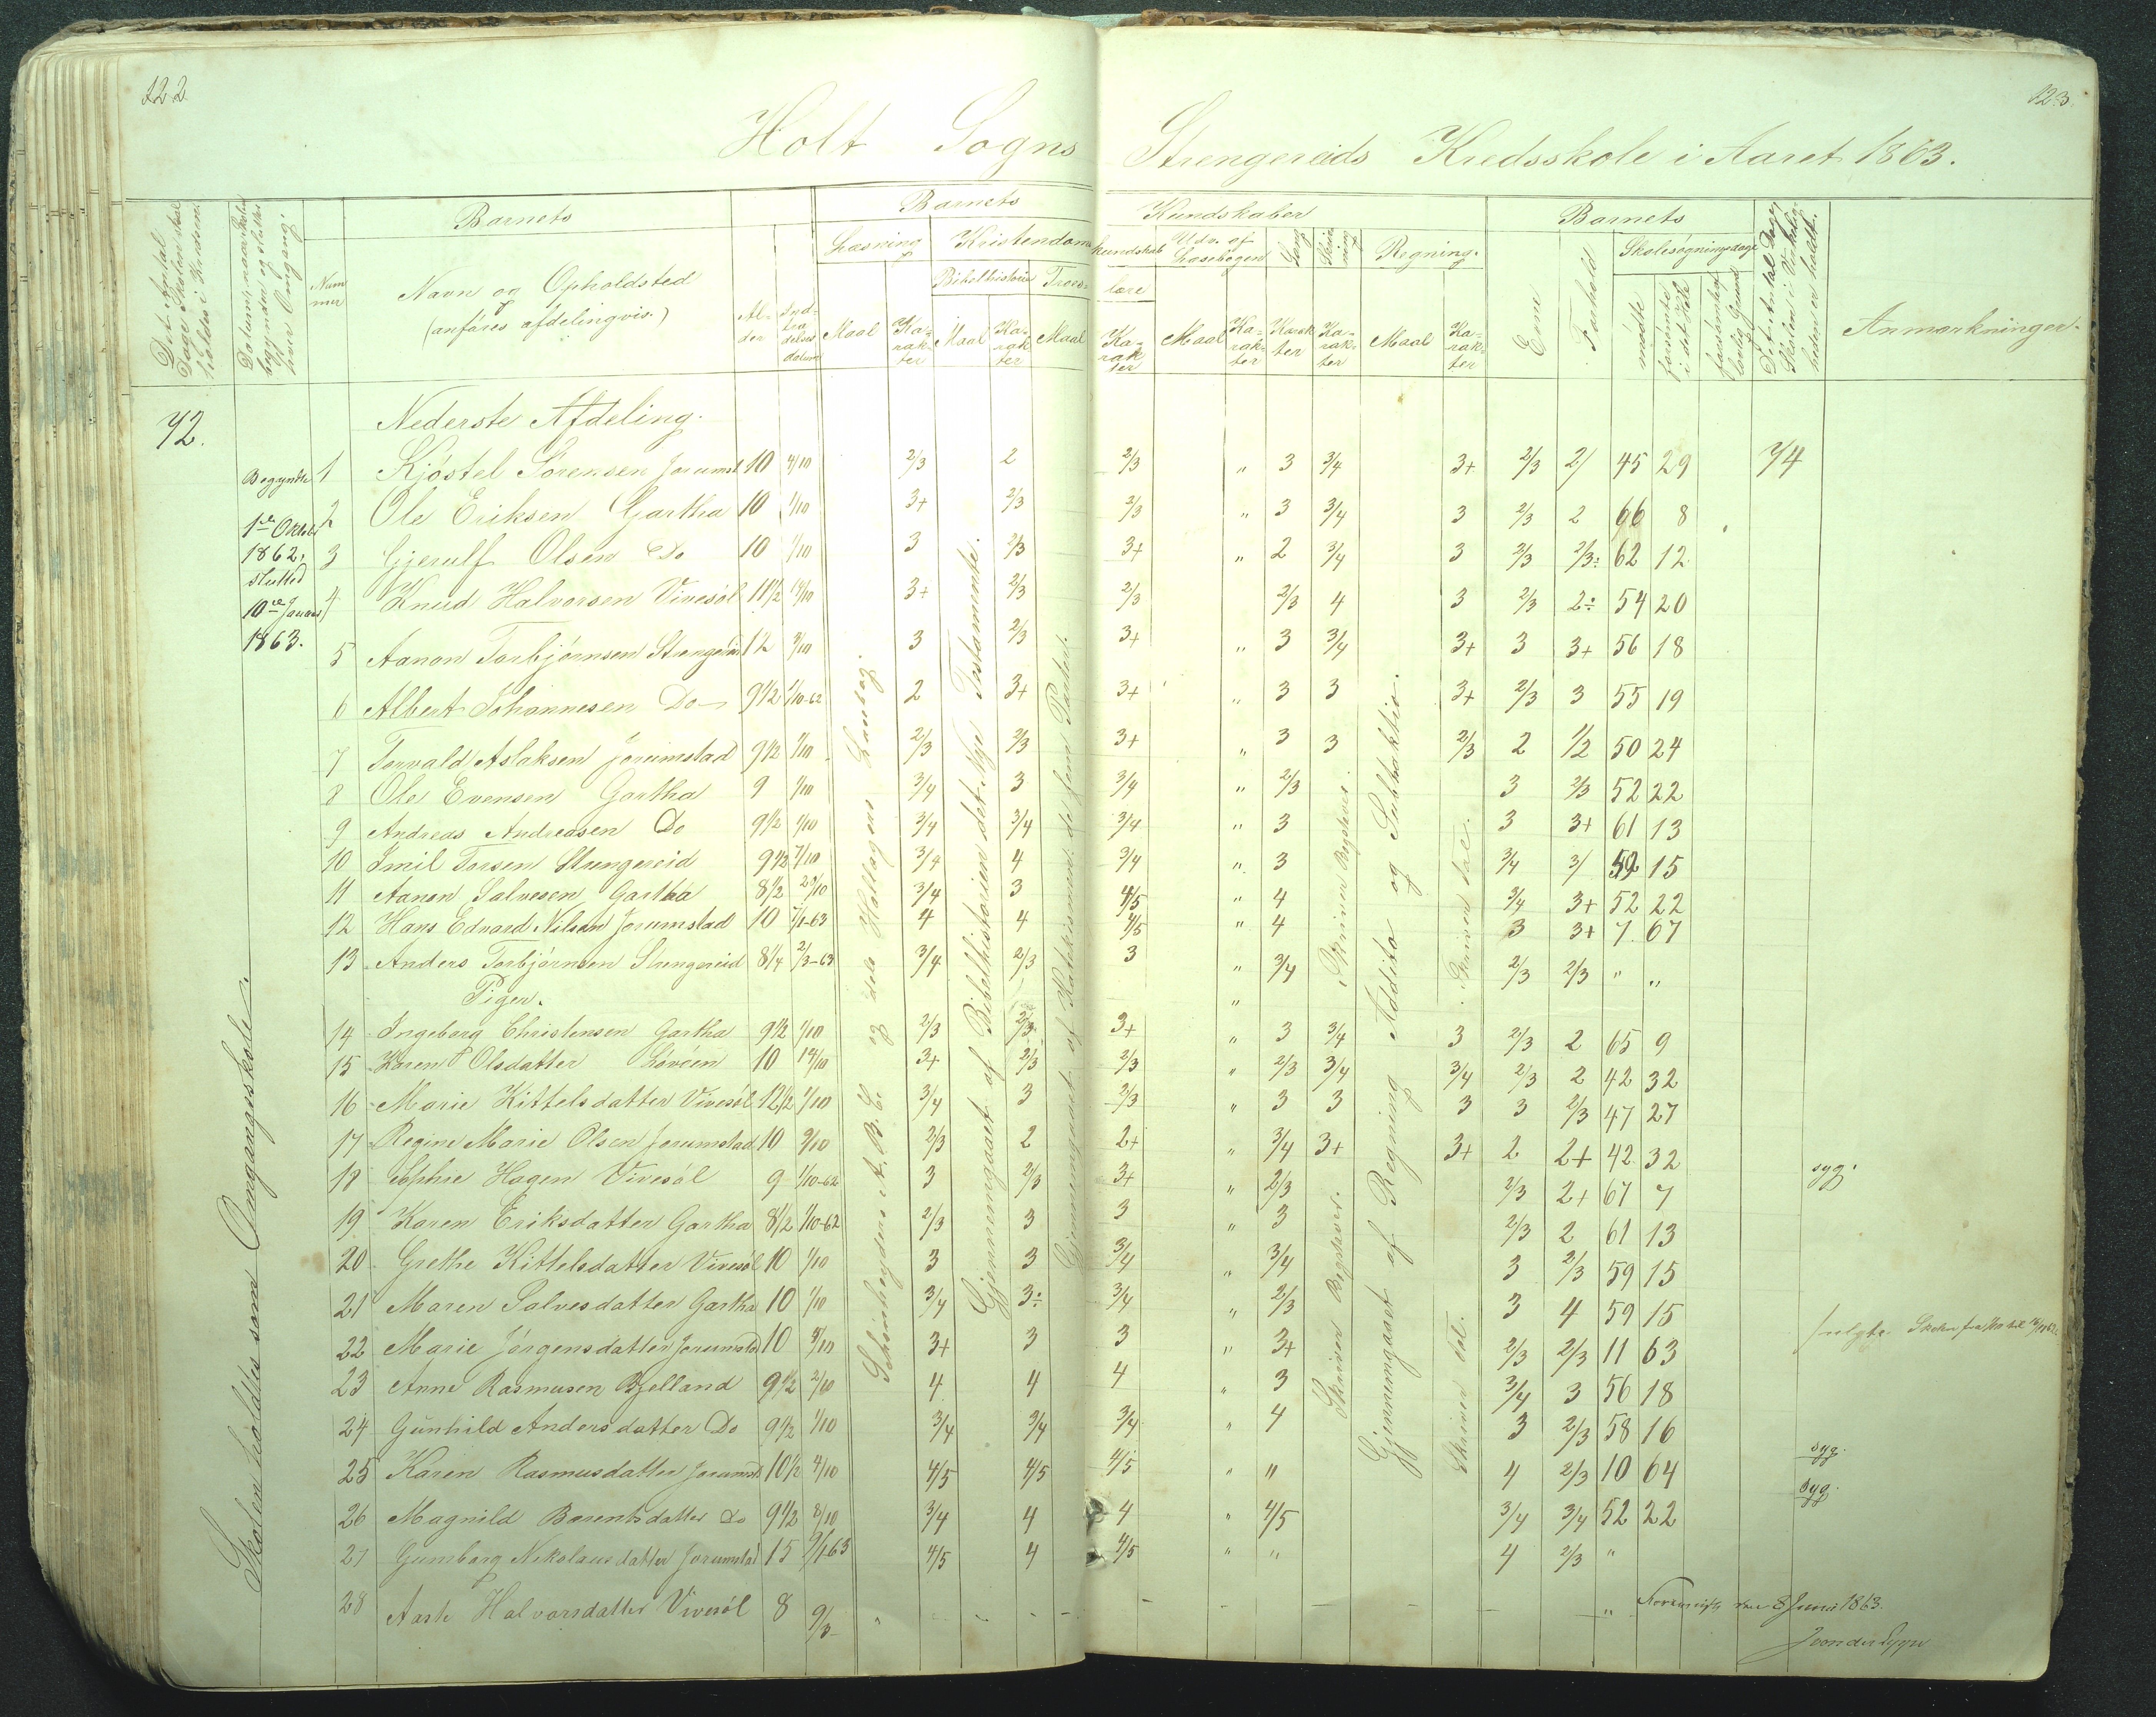 122
123.
Holt Sogns Strengereids Kredsskole i Aaret 1863.
Det Antal Dage Skolen skal holdes i Kredsen.
Datum, naar Skolen begyndte og sluttes hver Omgang.
Barnets
Barnets
Kundskaber
Barnets
Det Antal Dage Skolen i Virkeligheden er holdt.
Anmærkninger.
Nummer
Navn og Opholdsted
(anføres afdelingvis.)
Alder
Indtrædelsesdatum
Læsning
Kristendomskundskab
Udv. af Læsebogen
Sang
Skrivning
Regning.
Evne
Forhold
Skolesøgningsdage
Bibelhistorie
Troeslære
Maal Karakter Maal Karakter Maal Karakter Maal Karakter Karakter Karakter Maal Karakter
mødte
forsømte i det Hele
forsømte af lovlig Grund
72.
Nederste Afdeling.
Begyndte
1ste Oktober
1862,
slutted
10de Januar
1863.
Skolen holdtes som Omgangsskole.
1 Kjøstel Sørensen Jorumst 10 4/10 2/3 2 2/3 " 3 3/4 3+ 2/3 2/ 45 29 74
2 Ole Eriksen Gartha 10 1/10 3+ 2/3 2/3 " 3 3/4 3 2/3 2 66 8
3 Gjerulf Olsen Do 10 1/10 3 2/3 3+ " 2 3/4 3 2/3 2/3: 62 12
4 Knud Halvorsen Vivesøl 11 1/2 14/10 3+ 2/3 2/3 2/3 4 3 2/3 2÷ 54 20
5 Aanon Torbjørnsen Strengereid 12 3/10 3 2/3 3+ " 3 3/4 3+ 3 3+ 56 18
6 Albert Johannesen Do 9 1/2 1/10-62 2 3+ 3+ " 3 3 3+ 2/3 3 55 19
7 Torvald Aslaksen Jorumstad 9 1/2 1/10 2/3 2/3 3+ " 3 3 2/3 2 1/2 50 24
8 Ole Evensen Gartha 9 1/10 3/4 3 3/4 " 2/3 3 2/3 52 22
9 Andreas Andreasen Do 9 1/2 1/10 3/4 3/4 3/4 " 3 3 3+ 61 13
10 Emil Torsen Strengereid 9 1/2 7/10 3/4 4 3/4 " 3 3/4 3/ 59 15
11 Aanon Salvesen Gartha 8 1/2 29/10 3/4 3 4/5 " 4 3/4 3+ 52 22
12 Hans Edvard Nilsen Jorumstad 10 7/1-63 4 4 4/5 " 4 3 3+ 7 67
13 Anders Torbjørnsen Strengereid 8 1/4 2/3-63 3/4 2/3 3 " 3/4 2/3 2/3 " "
Piger.
14 Ingeborg Christensen Gartha 9 1/2 1/10 2/3 2/3 3+ " 3 3/4 3 2/3 2 65 9
15 Karen Olsdatter Løveen 10 14/10 3+ 2/3 2/3 " 2/3 3/4 3/4 2/3 2 42 32
16 Marie Kittelsdatter Vivesøl 12 1/2 1/10 3/4 3 2/3 " 3 3 3 3 2/3 47 27
17 Regine Marie Olsen Jorumstad 10 9/10 2/3 2 2+ " 3/4 3+ 3+ 2 2+ 42 32
18 Sophie Hagen Vivesøl 9 1/10-62 3 2/3 3+ " 2/3 2/3 2+ 67 7 syg.
19 Karen Eriksdatter Gartha 8 1/2 1/10-62 2/3 3 3 " 3 2/3 2 61 13
20 Grethe Kittelsdatter Vivesøl 10 1/10 3 3 3/4 " 3/4 3 2/3 59 15
21 Maren Salvesdatter Gartha 10 1/10 3/4 3÷ 3/4 " 2/3 3 4 59 15
22 Marie Jørgensdatter Jorumstad 10 8/10 3+ 3 3 " 3+ 2/3 2/3 11 63
23 Anne Rasmusen Bjelland 9 1/2 2/10 4 4 4 " 3 3/4 3 56 18
24 Gunhild Andersdatter Do 9 1/2 1/10 3/4 3/4 3/4 " 4 3 2/3 58 16
25 Karen Rasmusdatter Jorumst 10 1/2 4/10 4/5 4/5 4/5 " " 4 2/3 10 64 syg.
26 Magnild Barentsdatter Do 9 1/2 8/10 3/4 4 4 " 4/5 3/4 3/4 52 22 syg.
27 Gunborg Nikolausdatter Jorumstad 15 9/1-63 4/5 4 4/5 " " 4 2/3 "
28 Aaste Halvorsdatter Vivesøl 8 9/3 "
Schønheyders A.B.C. og dels Holtlagens Landtog.
Gjennemgaaet af Bibelhistorien det Nye Testamente.
Gjennemgaaet af Katekismen: de fem Parter.
Skriver Bogstaver.
Skriver Bogstaver.
Gjennemgaaet af Regning Addito og Subtraktio.
Skriver tal.
Skriver tal.
den 8 Juni 1863.